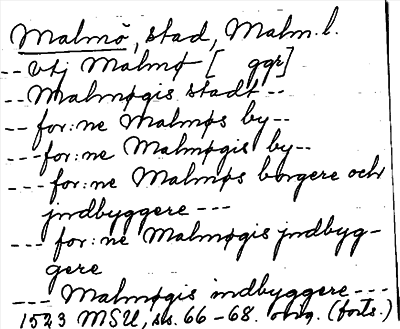 Malmö, stad, Malm. l.
-- vtj Malmø [ ggr]
-- Malmøgis stadt --
-- for:ne Malmøs by --
--- for:ne Malmøgis by --
--- for:ne Malmøs borgere och
jndbyggere ---
-- for:ne Malmøgis jndbyg-
gere
--- Malmøgis indbyggere ---
1523 MSU, ss. 66-68. (forts.)